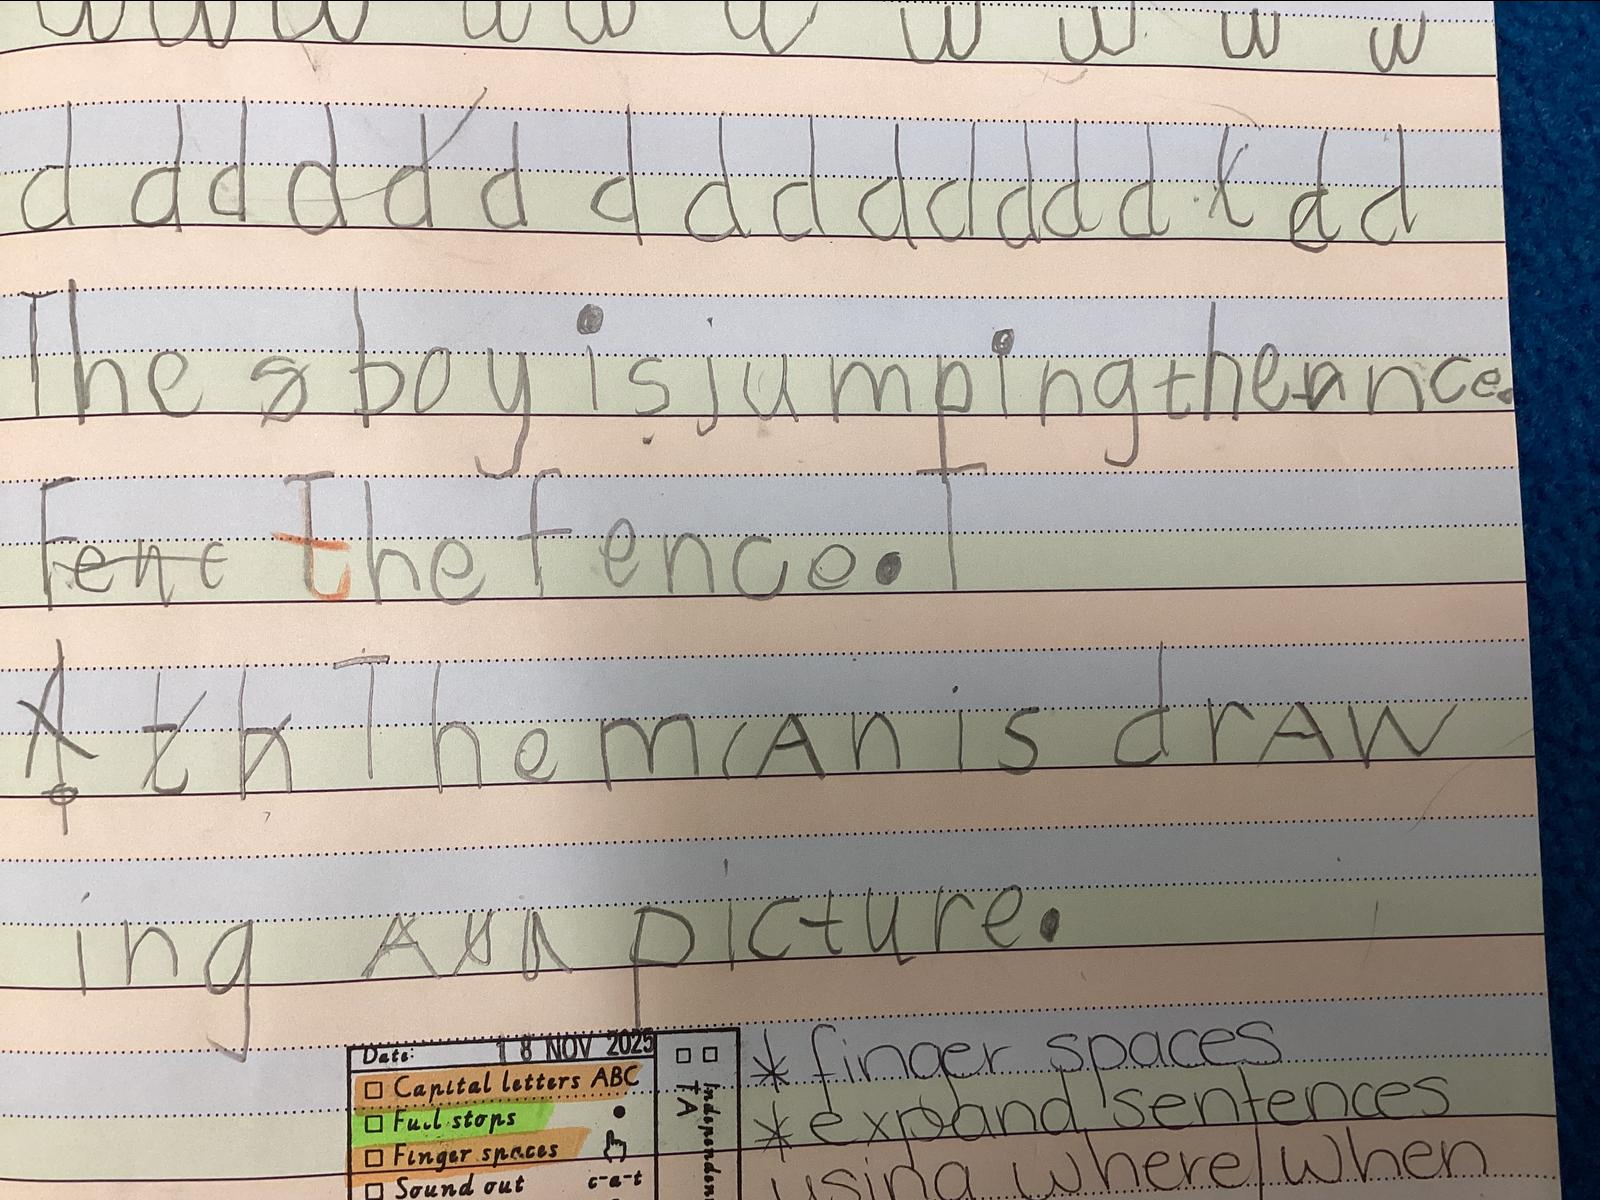 w w w w w w w w w w
d d d d d d d d d d d d d d d d d
The boy is jumping the
Fenc the fence.
A th The man is draw
ing a picture.
Date: 18 NOV 2025
Capital letters ABC
Full stops
Finger spaces
Sound out c-a-t
TA
Independent
* finger spaces
* expand sentences
using where/when